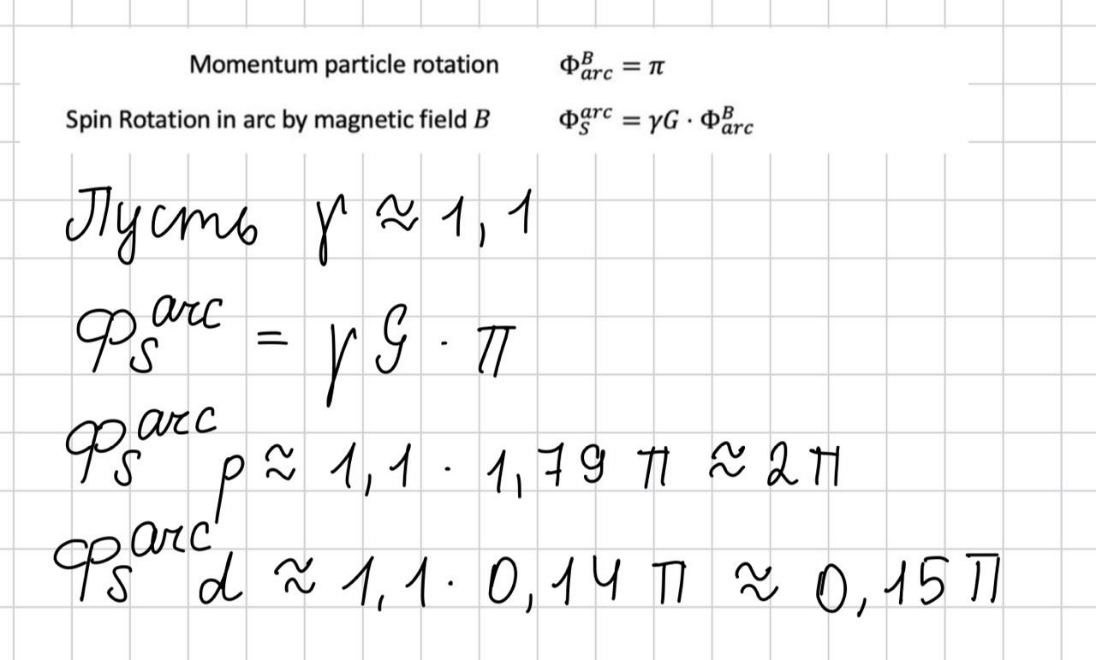 Momentum particle rotation Φ_arc^B = π
Spin Rotation in arc by magnetic field B Φ_S^arc = γG · Φ_arc^B
Пусть γ ≈ 1,1
Φ_S^arc = γ G · π
Φ_S^arc p ≈ 1,1 · 1,79 π ≈ 2π
Φ_S^arc d ≈ 1,1 · 0,14 π ≈ 0,15 π